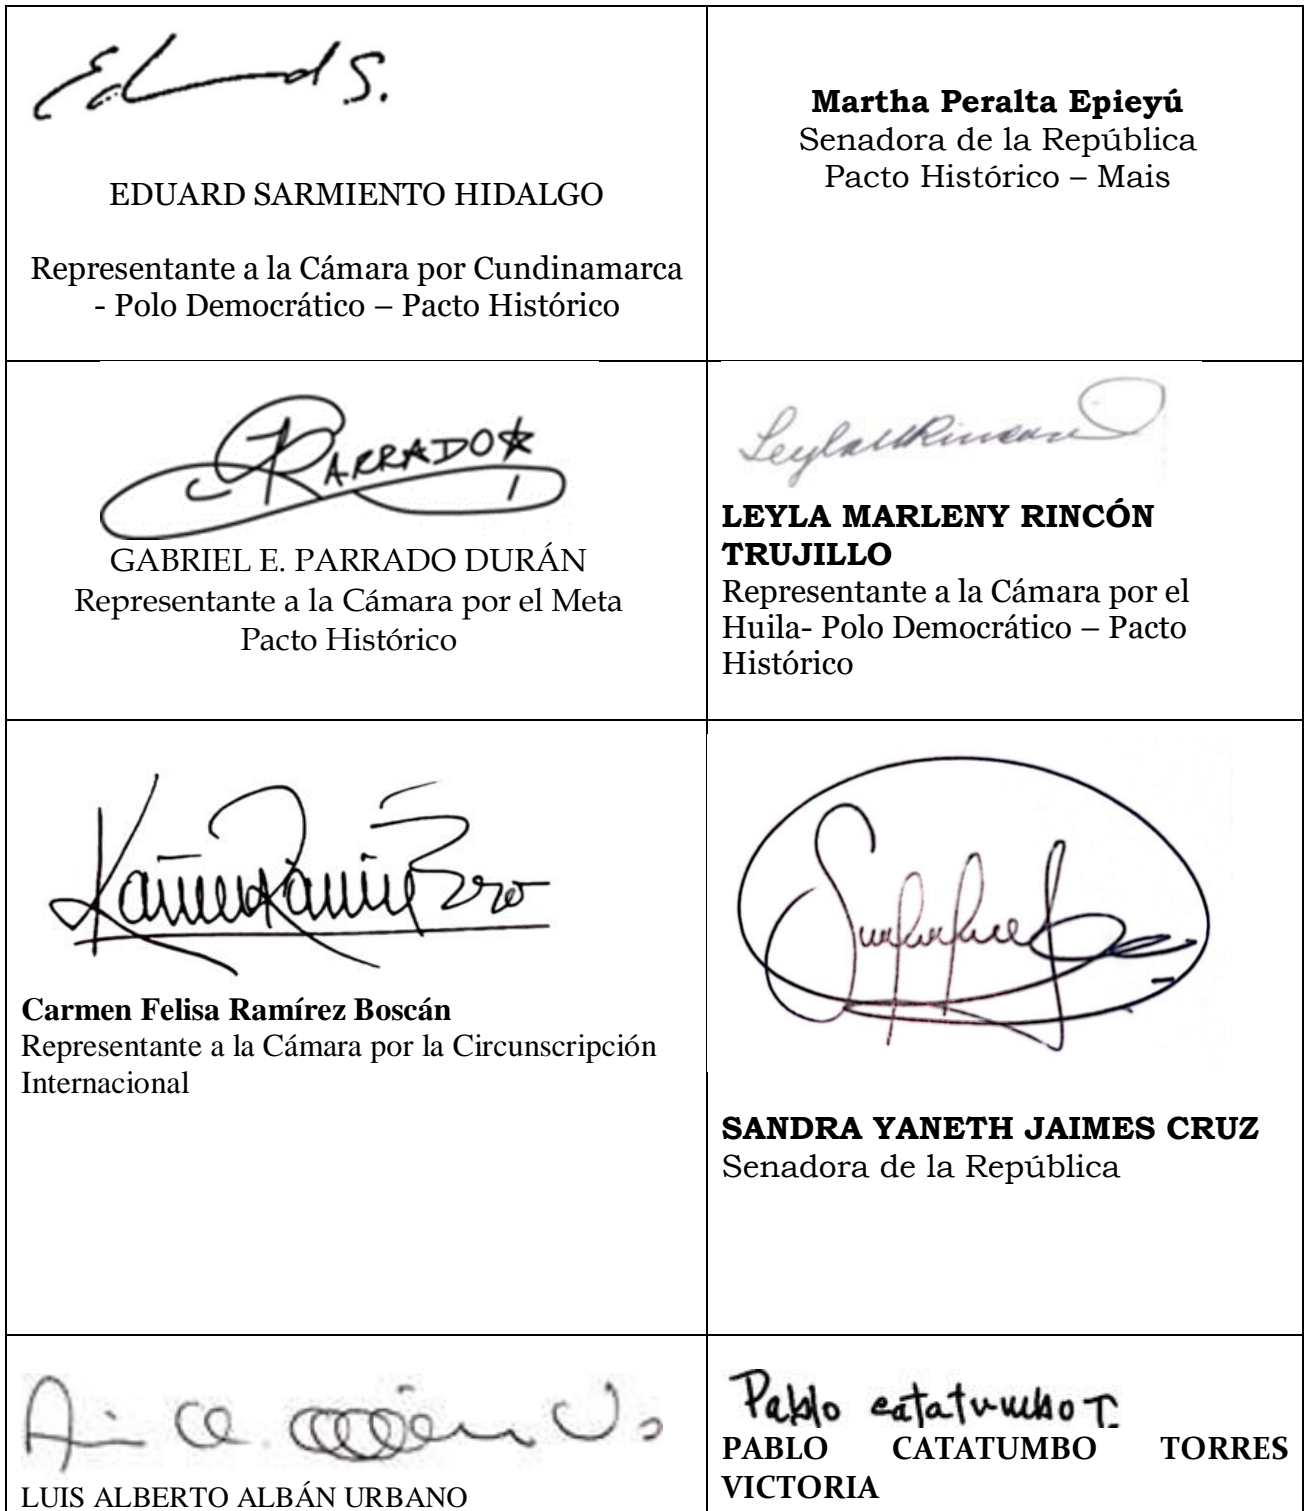 Eduard S.
EDUARD SARMIENTO HIDALGO
Representante a la Cámara por Cundinamarca
- Polo Democrático – Pacto Histórico
Martha Peralta Epieyú
Senadora de la República
Pacto Histórico – Mais
PARRADO
GABRIEL E. PARRADO DURÁN
Representante a la Cámara por el Meta
Pacto Histórico
LEYLA MARLENY RINCÓN
TRUJILLO
Representante a la Cámara por el
Huila- Polo Democrático – Pacto
Histórico
Carmen Felisa Ramírez Boscán
Representante a la Cámara por la Circunscripción
Internacional
SANDRA YANETH JAIMES CRUZ
Senadora de la República
LUIS ALBERTO ALBÁN URBANO
Pablo Catatumbo T.
PABLO CATATUMBO TORRES
VICTORIA